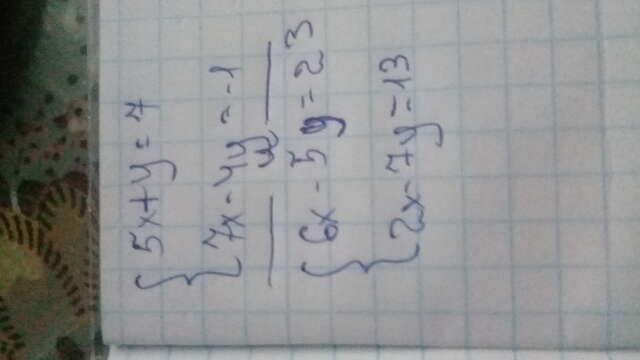 5x+y=7
7x-4y=-1
6x-5y=23
2x-7y=13